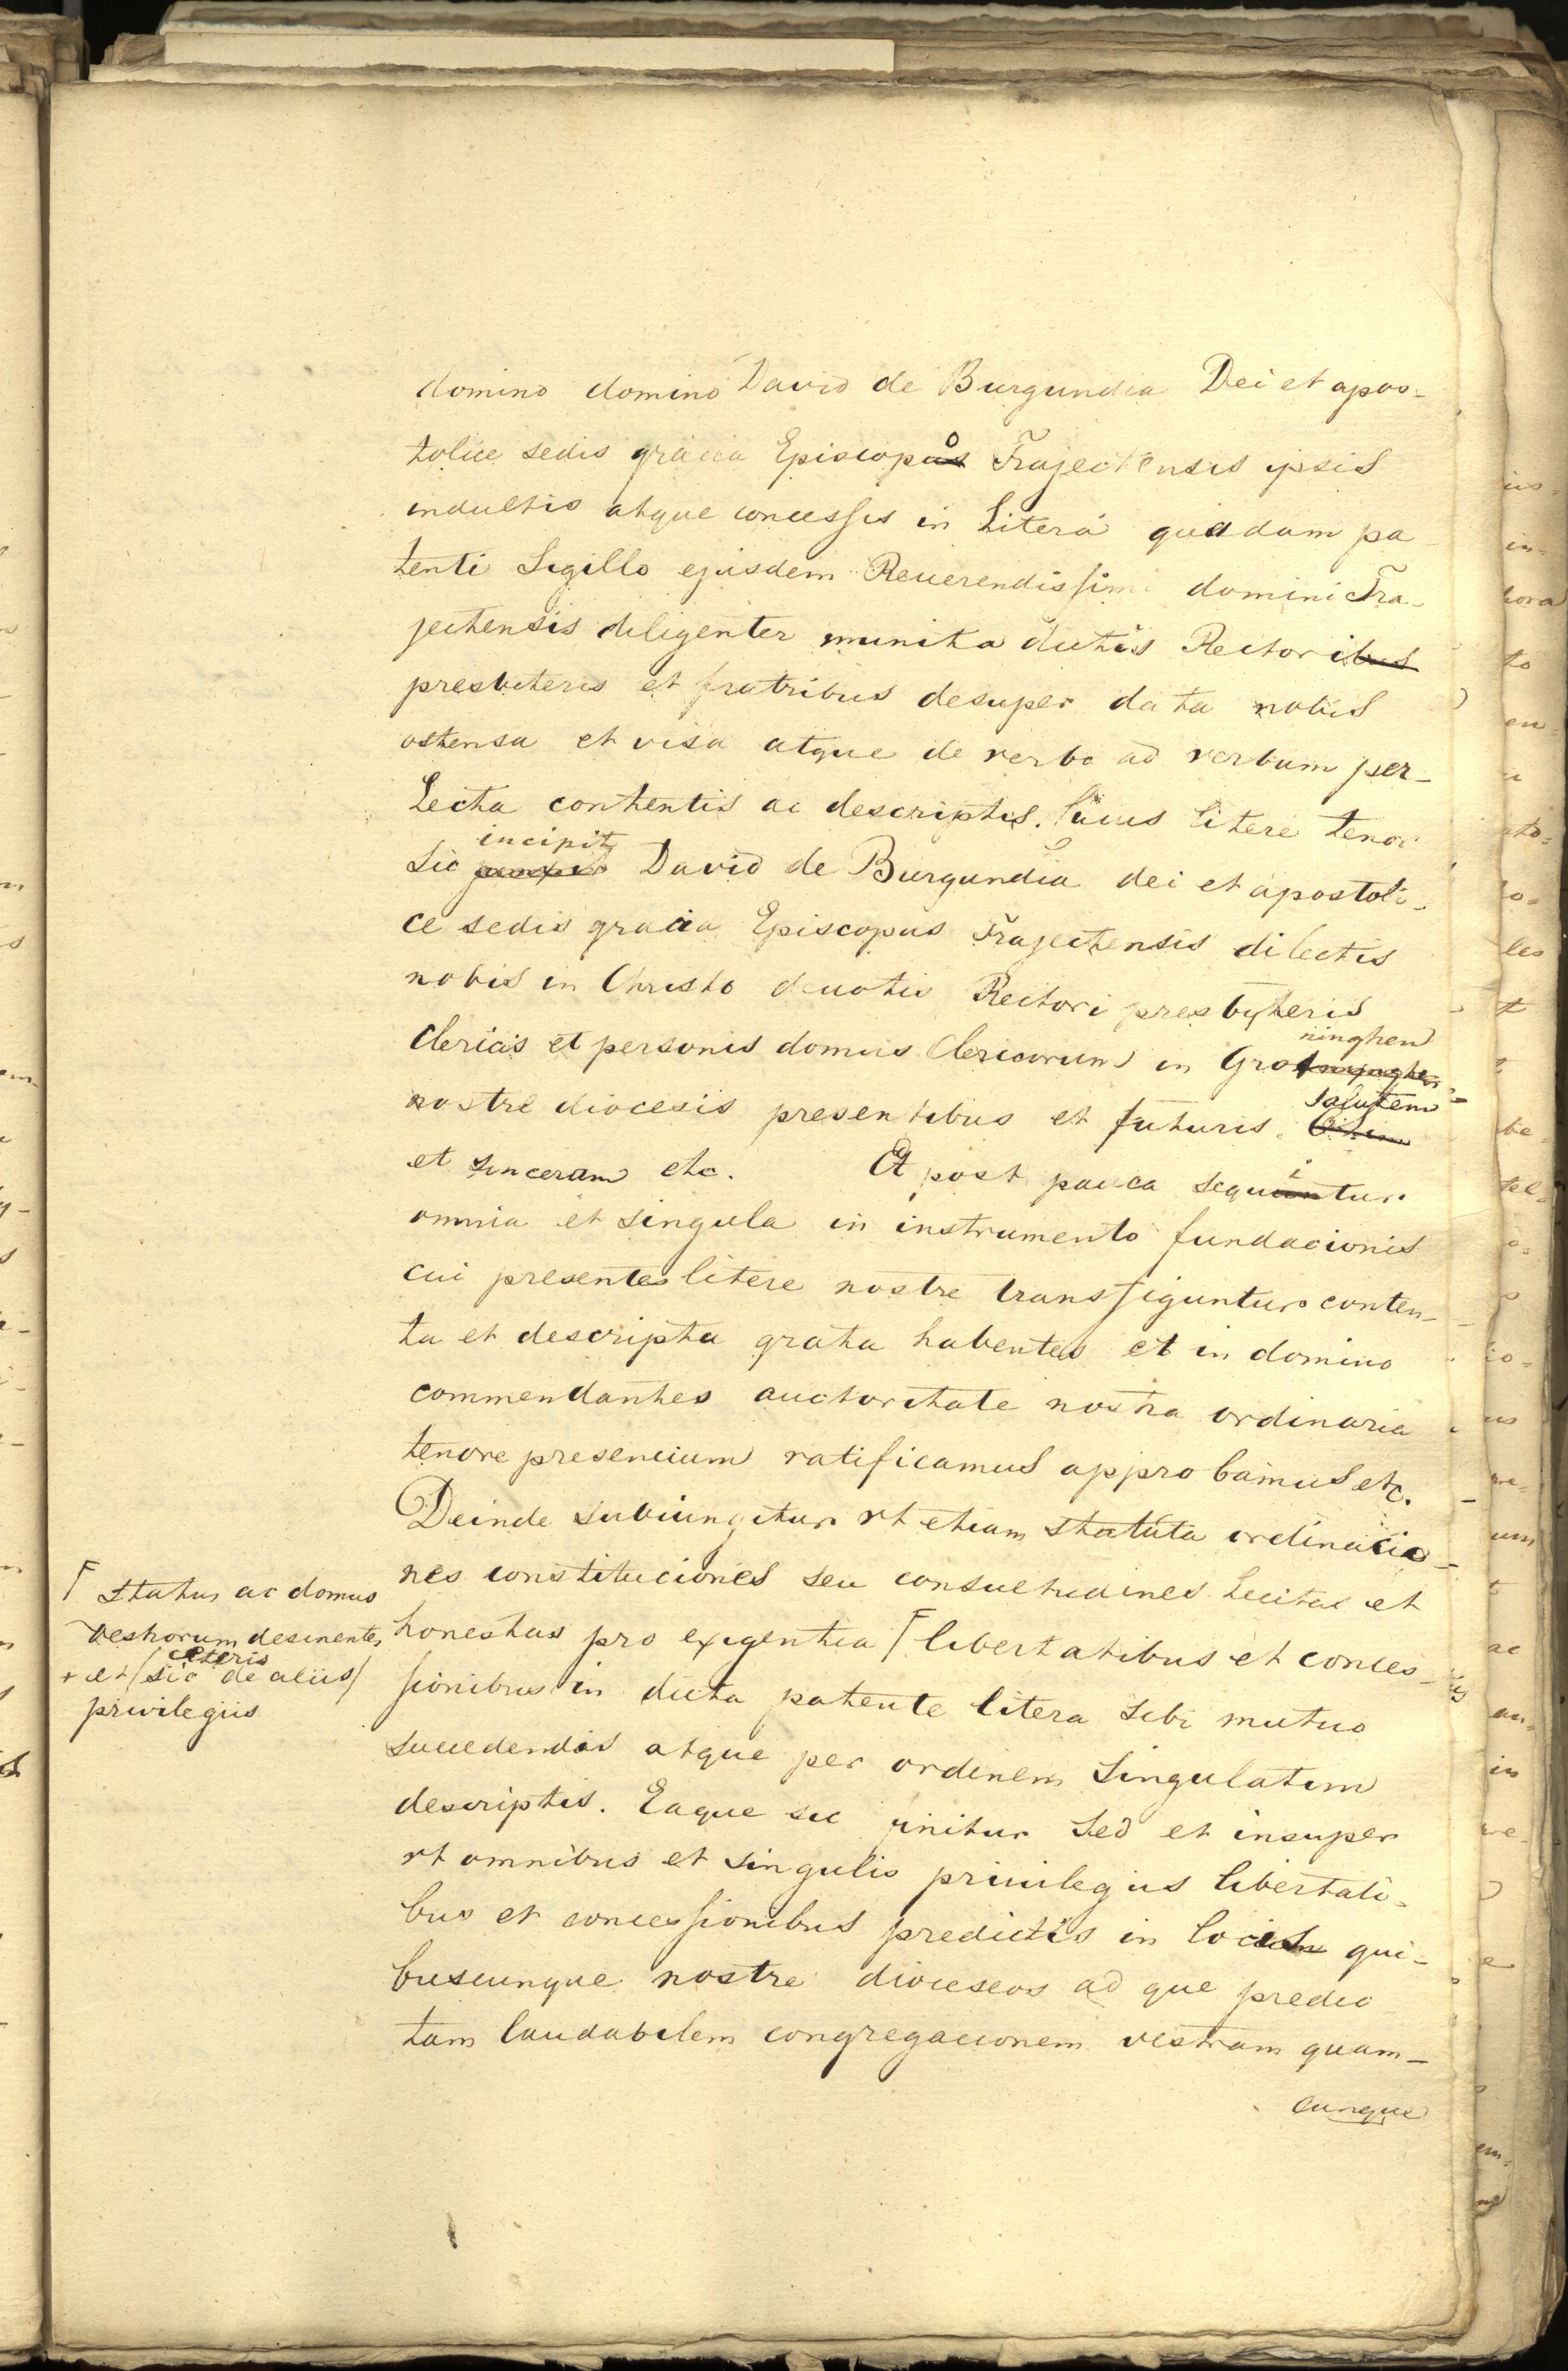 domino domino David de Burgundia Dei et apos-
tolice sedis gracia Episcopo Trajectensis ipsis
indultis atque concessis in Litera quadam pa
tenti Sigillo ejusdem Reuerendissimi domini Tra-
jectensis diligenter munita dictis Rectori
presbiteris et fratribus desuper data nobis
ostensa et visa atque de verbo ad verbum per-
Lecta contentis ac descriptis. Cuius litere tenor
incipit
Sic David de Burgundia dei et apostoli-
ce sedis gracia Episcopus Trajectensis dilectis
nobis in Christo deuotis Rectori presbyteris
ninghen
Clericis et personis domus Clericorum in Gro
nostre diocesis presentibus et futuris. Salutem
et sinceram etc. Et post pauca sequitur
omnia et singula in instrumento fundacionis
cui presentes litere nostre transfiguntur conten-
ta et descripta grata habentes et in domino
commendantes auctoritate nostra ordinaria
tenore presencium ratificamus approbamus etc.
Deinde subiungitur vt etiam statuta ordinacio-
nes constituciones seu consuetudines Licitas et
honestas pro exigentia ⌈ libertatibus et conces-
sionibus in dicta patente litera sibi mutuo
succedendis atque per ordinem singulatim
descriptis. Eaque sic finitur Sed et insuper
vt omnibus et singulis priuilegiis libertati-
bus et concessionibus predictis in locis qui-
buscunque nostre dioceseos ad que predic
tam laudabilem congregacionem vestram quam-
cunque
⌈ status ac domus
vestrorum desinentes
ceteris
+ et / sic de aliis /
privilegiis